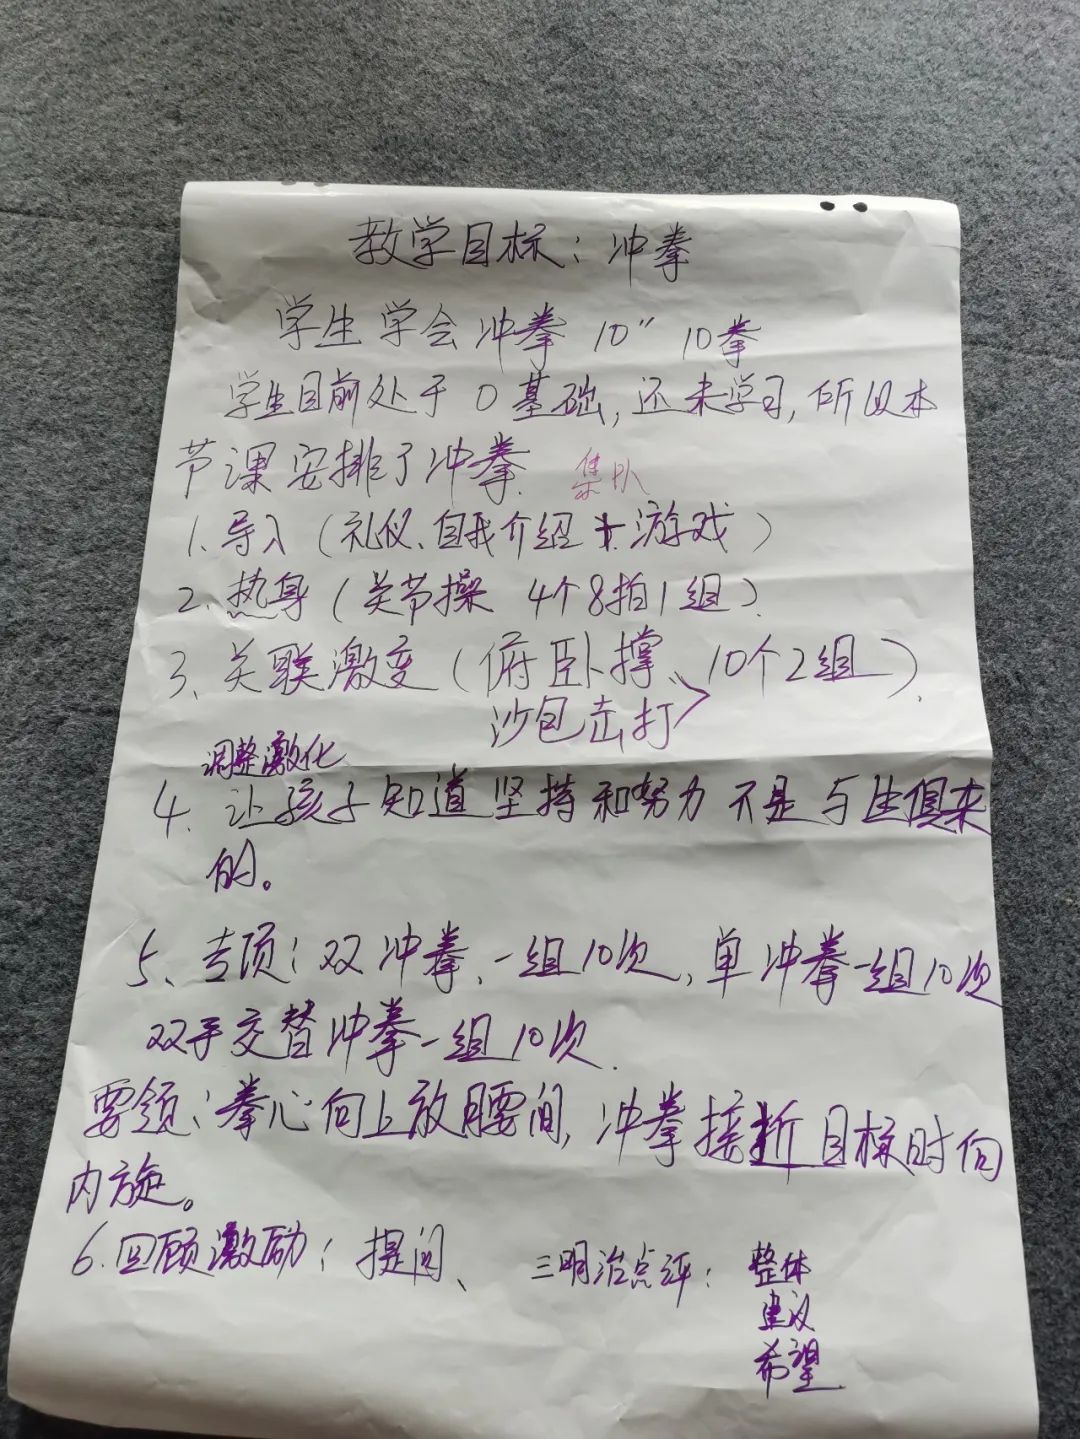 教学目标：冲拳
学生学会冲拳 10" 10拳
学生目前处于0基础，还未学习，所以本
节课安排了冲拳。 集队
1、导入（礼仪、自我介绍+游戏）
2、热身（关节操 4个8拍1组）
3、关联激变（俯卧撑、10个2组）
沙包击打
调整激化
4、让孩子知道坚持和努力不是与生俱来
的。
5、专项：双冲拳、一组10次，单冲拳一组10次
双手交替冲拳一组10次
要领：拳心向上放腰间，冲拳接近目标时向
内旋。
6、回顾激励：提问、 三明治点评：整体
建议
希望